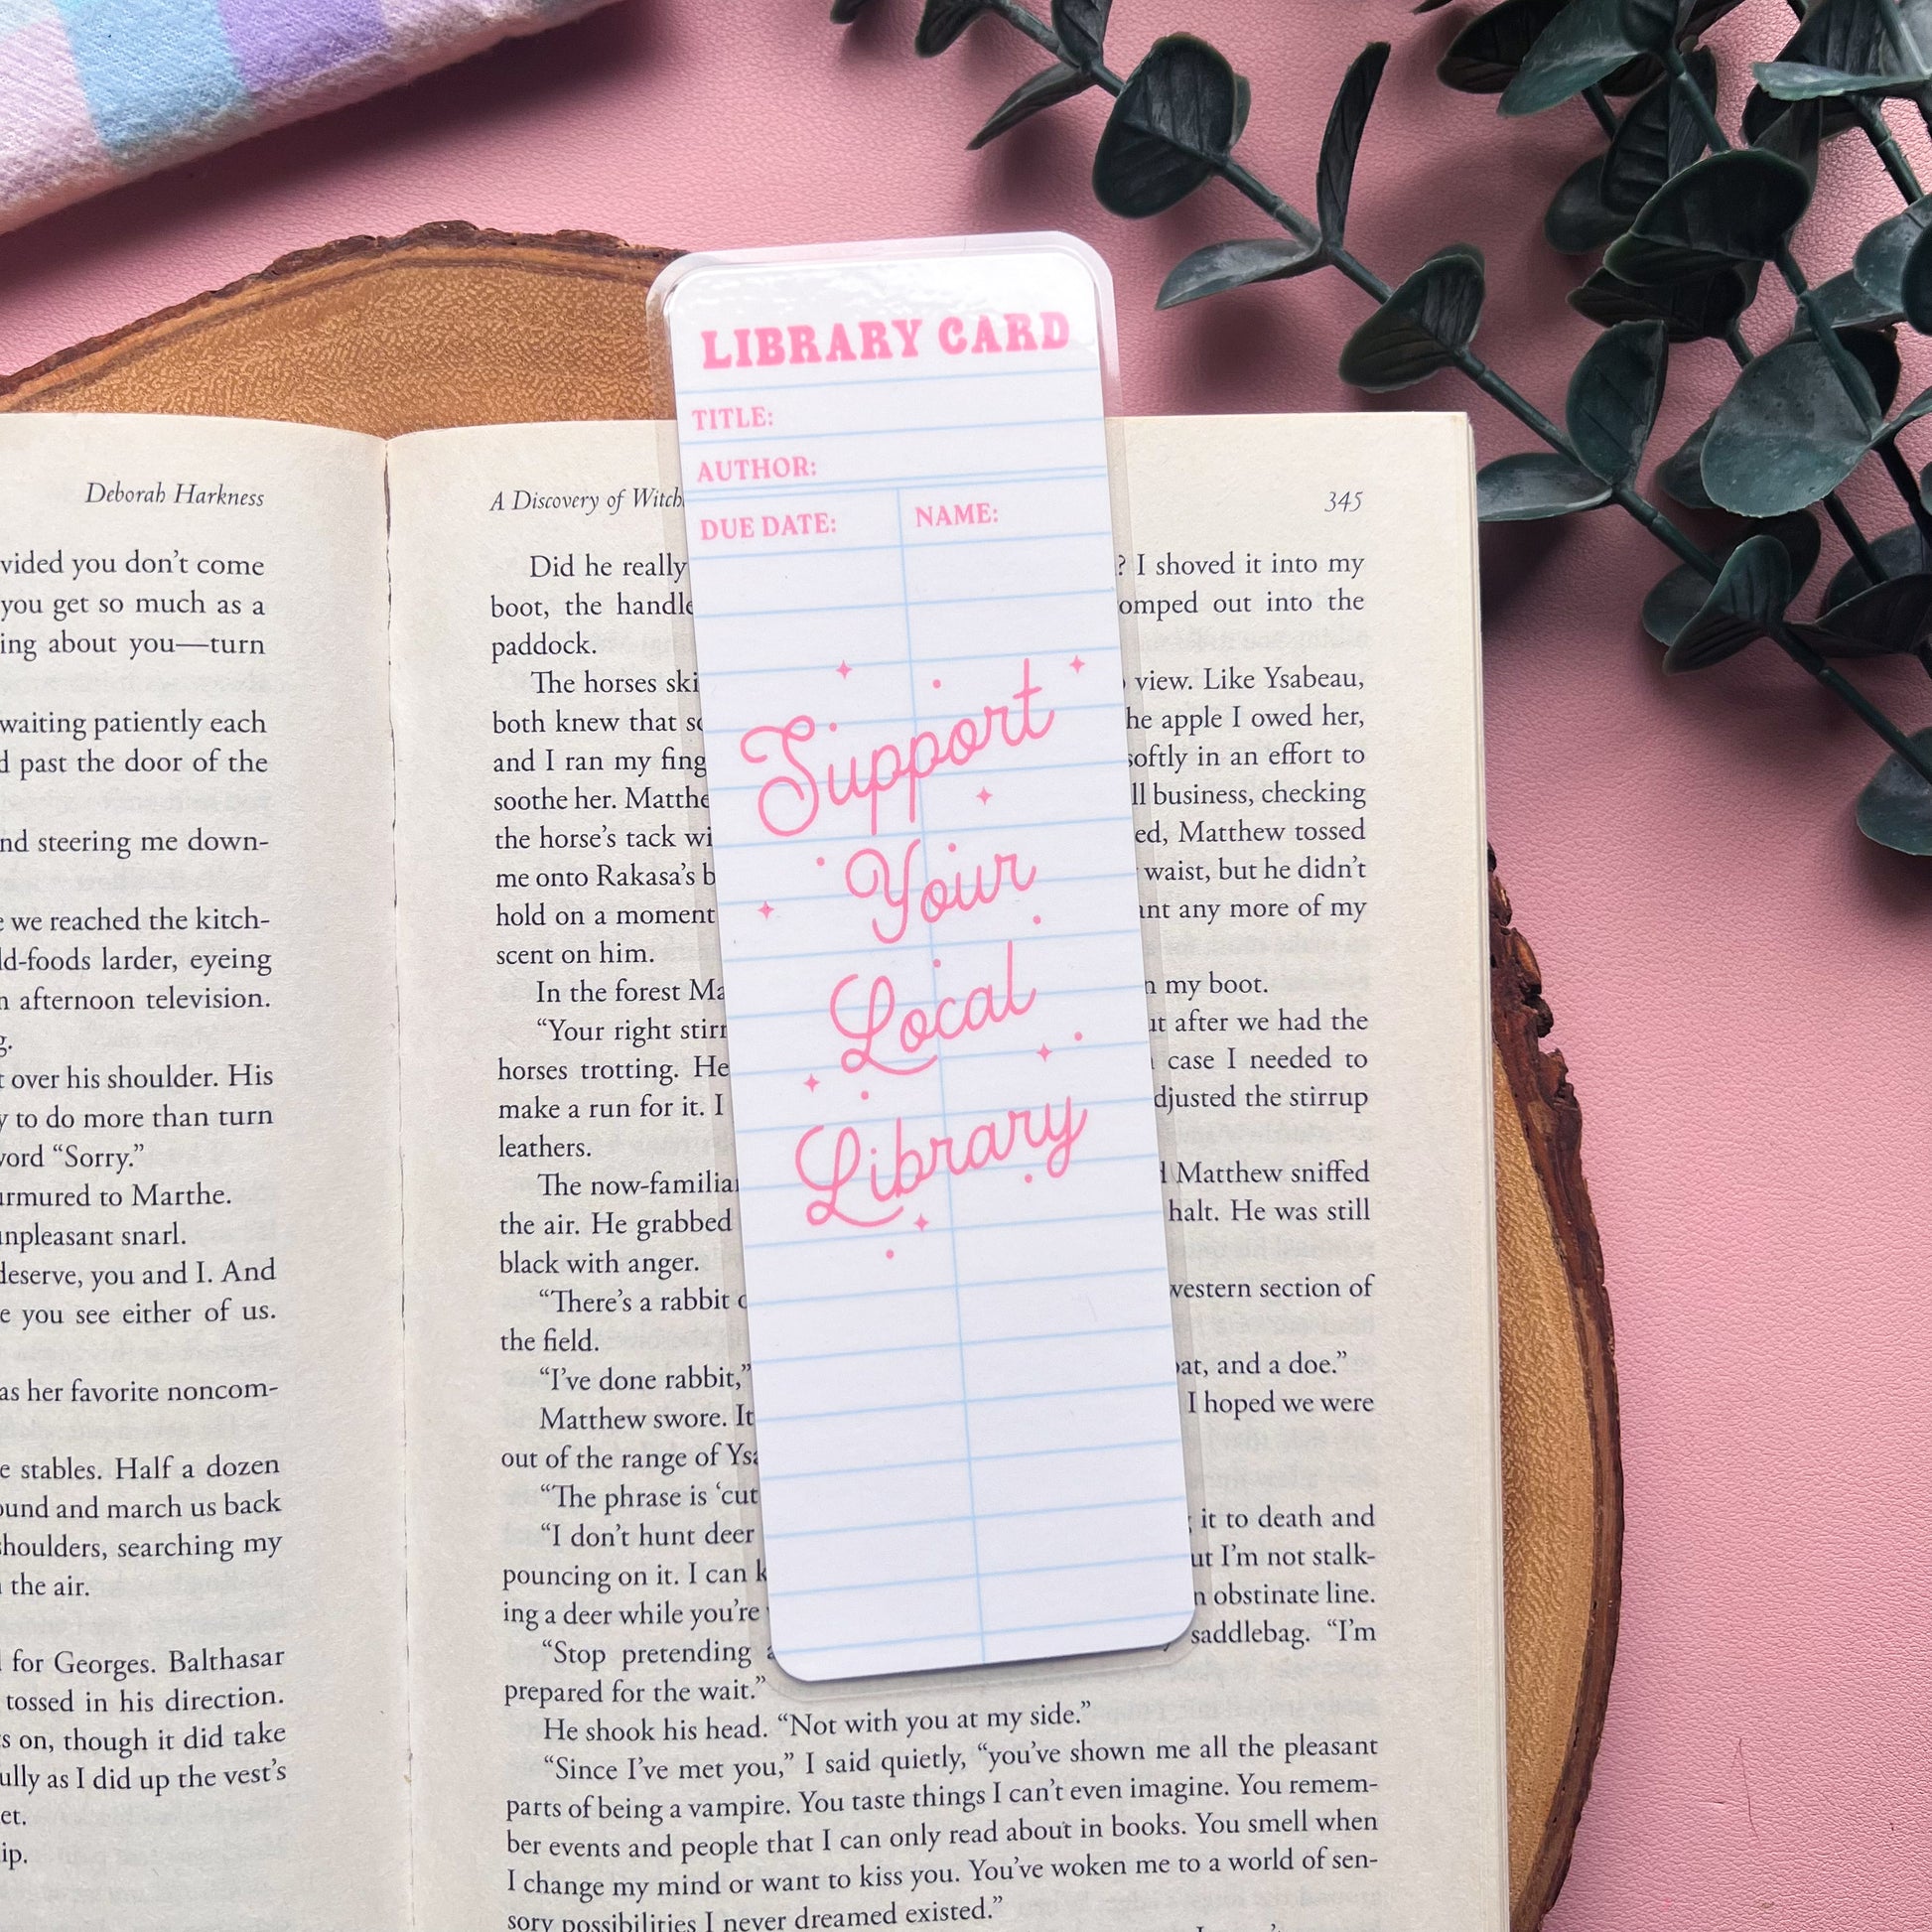 LIBRARY CARD
TITLE:
AUTHOR:
DUE DATE: NAME:
Support
Your
Local
Library
Deborah Harkness
vided you don't come
you get so much as a
ing about you—turn
waiting patiently each
past the door of the
nd steering me down-
we reached the kitch-
ld-foods larder, eyeing
afternoon television.
g.
over his shoulder. His
to do more than turn
word "Sorry."
urmured to Marthe.
unpleasant snarl.
deserve, you and I. And
you see either of us.
as her favorite noncom-
stables. Half a dozen
ound and march us back
shoulders, searching my
the air.
for Georges. Balthasar
tossed in his direction.
s on, though it did take
ully as I did up the vest's
et.
ip.
A Discovery of Witch 345
Did he really ? I shoved it into my
boot, the handle omped out into the
paddock.
The horses ski view. Like Ysabeau,
both knew that so he apple I owed her,
and I ran my fing softly in an effort to
soothe her. Matthe ll business, checking
the horse's tack wi ed, Matthew tossed
me onto Rakasa's b waist, but he didn't
hold on a moment ant any more of my
scent on him.
In the forest Ma n my boot.
"Your right stirr ut after we had the
horses trotting. He case I needed to
make a run for it. I djusted the stirrup
leathers.
The now-familiar Matthew sniffed
the air. He grabbed halt. He was still
black with anger.
"There's a rabbit western section of
the field.
"I've done rabbit," oat, and a doe."
Matthew swore. It I hoped we were
out of the range of Ysa
"The phrase is 'cut it to death and
"I don't hunt deer ut I'm not stalk-
pouncing on it. I can k n obstinate line.
ing a deer while you're saddlebag. "I'm
"Stop pretending
prepared for the wait."
He shook his head. "Not with you at my side."
"Since I've met you," I said quietly, "you've shown me all the pleasant
parts of being a vampire. You taste things I can't even imagine. You remem-
ber events and people that I can only read about in books. You smell when
I change my mind or want to kiss you. You've woken me to a world of sen-
sory possibilities I never dreamed existed."